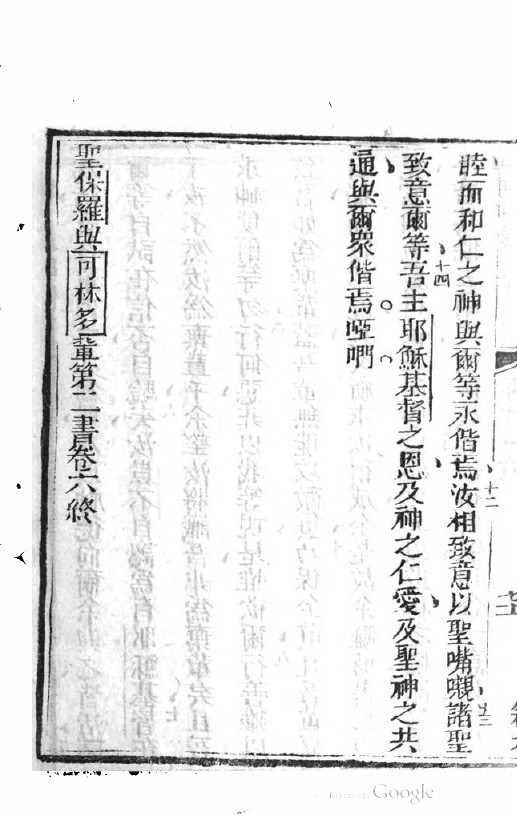 睦而和仁之神與爾等永偕焉汝相致意以聖嘴嚫諸聖
十二
十三
十四
致意爾等吾主耶穌基督之恩及神之仁愛及聖神之共
通與爾眾偕焉啞們
聖保羅與可林多輩第二書卷六終
Digitized by Google